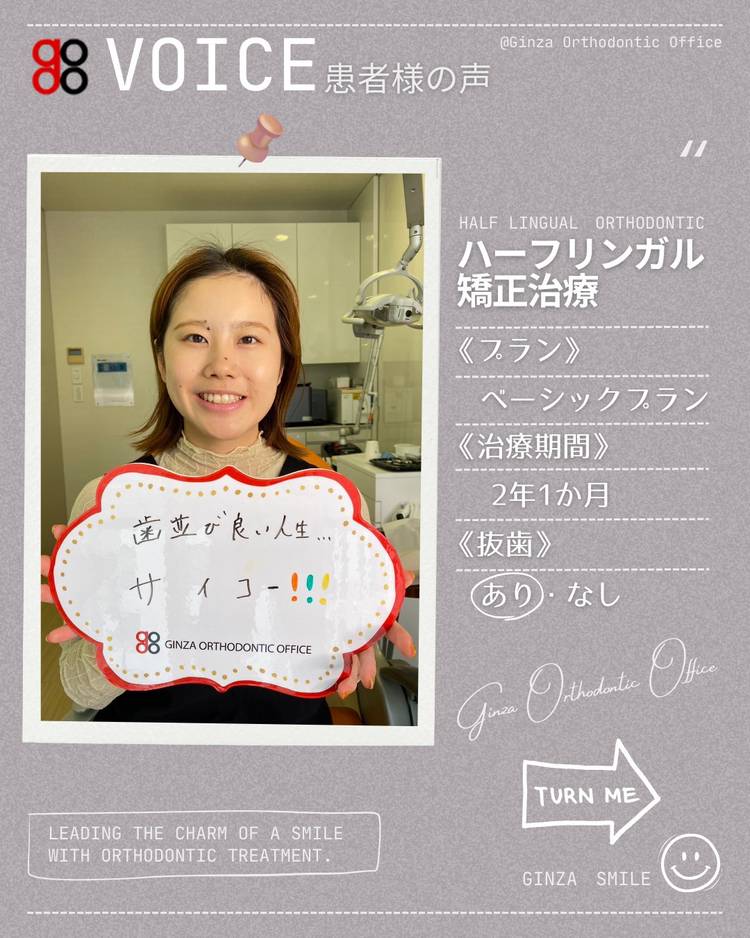 @Ginza Orthodontic Office
goo VOICE 患者様の声
“
HALF LINGUAL ORTHODONTIC
ハーフリンガル
矯正治療
《プラン》
ベーシックプラン
《治療期間》
2年1か月
《抜歯》
あり・なし
歯並びが良い人生...
サイコー!!!
goo GINZA ORTHODONTIC OFFICE
Ginza Orthodontic Office
TURN ME
LEADING THE CHARM OF A SMILE
WITH ORTHODONTIC TREATMENT.
GINZA SMILE